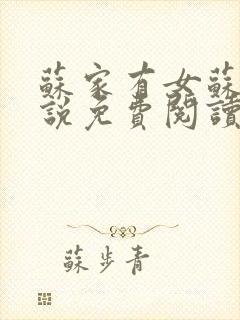 蘇家有女蘇
說免費閱讀
蘇步青